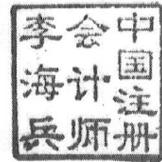 中国注册
会计师
李海兵